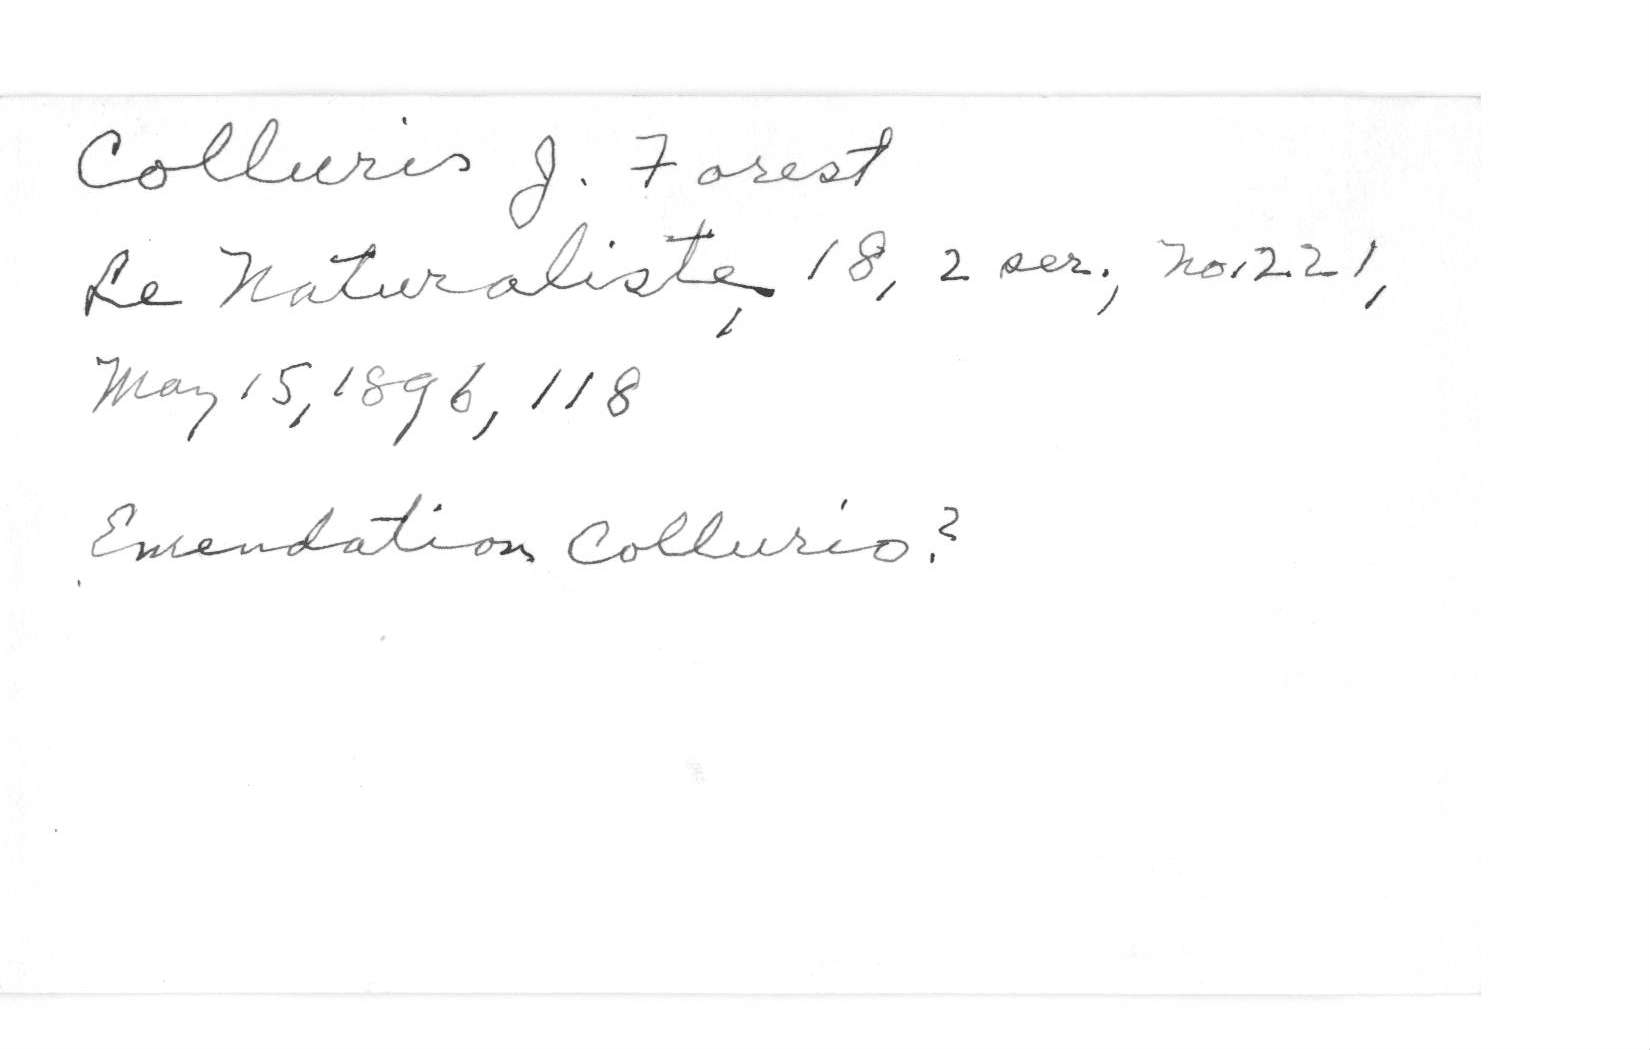 Colluris J. Forest
Le Naturaliste, 18, 2 ser., no. 221,
May 15, 1896, 118
Emendation Collurio?